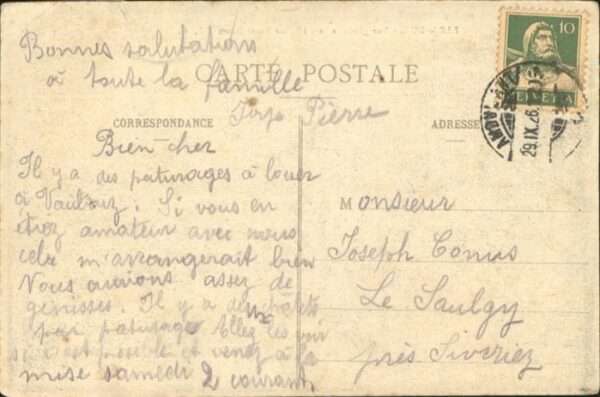 Bonnes salutations
à toute la famille
CARTE POSTALE
Pierre
CORRESPONDANCE
ADRESSE
10
HELVETIA
29.IX.26
Bien cher
Il y a des paturages à louer
à Vaulruz. Si vous en
étiez amateur avec nous
cela m'arrangerait bien
Nous aurions assez de
génisses. Il y a deux
par paturage Allez les voir
si c'est possible et venez à la
mise samedi 2 courant.
Monsieur
Joseph Comus
Le Saulgy
près Siveriez